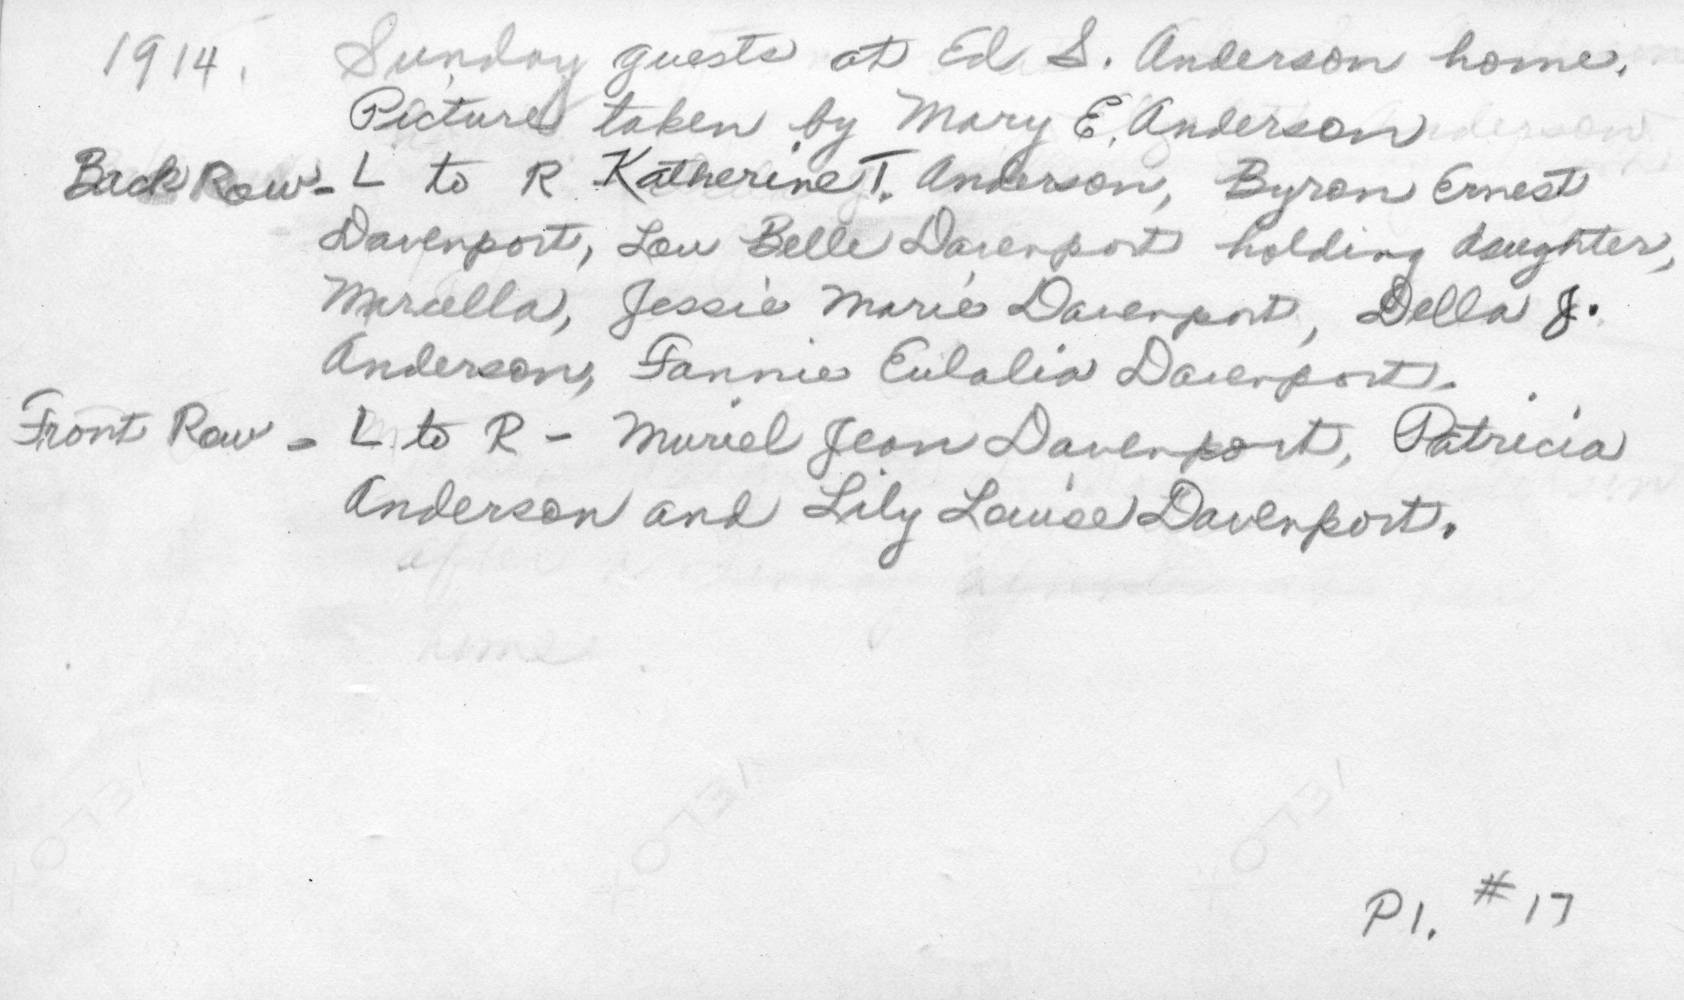 1914. Sunday guests at Ed S. Anderson home.
Picture taken by Mary E. Anderson
Back Row - L to R Katherine T. Anderson, Byron Ernest
Davenport, Lou Belle Davenport holding daughter,
Marcella, Jessie Marie Davenport, Della J.
Anderson, Fannie Eulalia Davenport.
Front Row - L to R - Muriel Jean Davenport, Patricia
Anderson and Lily Louise Davenport.
after a
home
VELOX
VELOX
VELOX
P1. #17